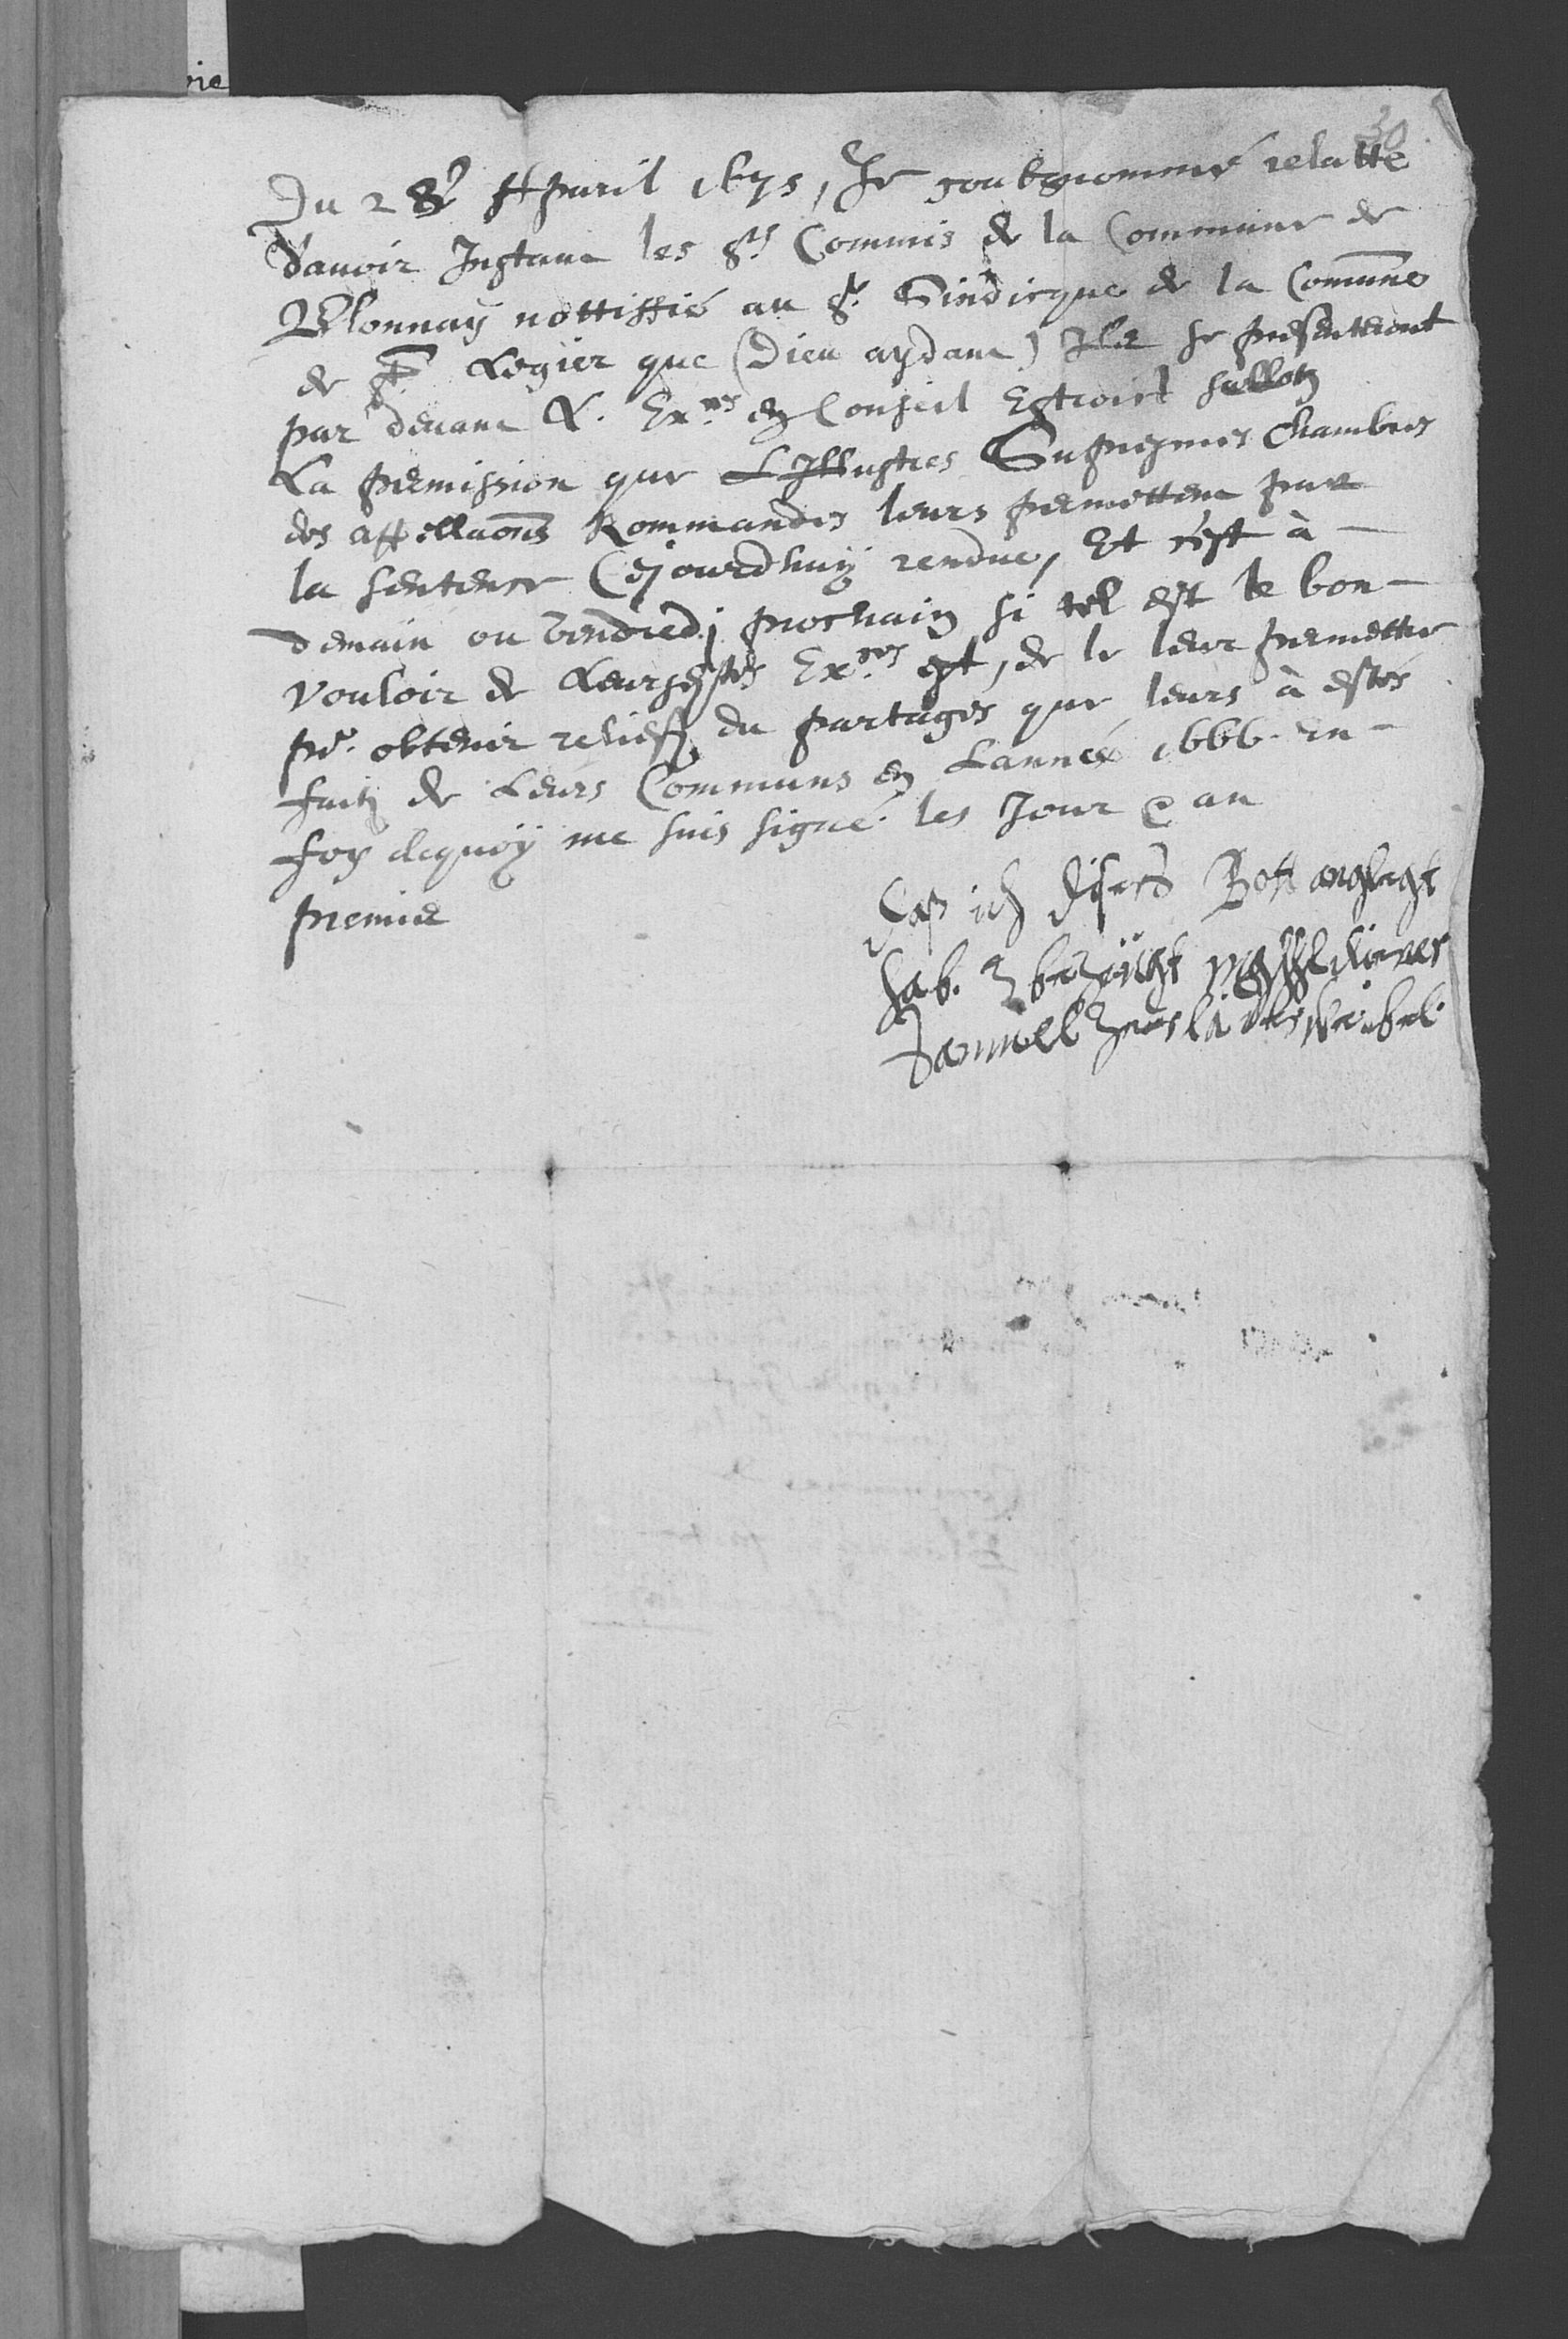 30
Du 28e Apvril 1675, Je soubsnommé relatte
d'avoir Instant les Srs Commis de la Commune de
Blonnay nottiffié au Sr Sindicque de la Comune
de St Legier que (Dieu aydant) Ils se presenteront
par devant L. Exces en Conseil Estroict sellon
La permission que L Illustres Supresmes Chambres
des appellaons Rommandes leurs permettent par
la sentence Cejourdhuy rendue, Et c'est à
demain ou vendredj prochain si tel est le bon
vouloir de Leursdites Exces est, de le leur permettre
pr obtenir relieff du partages que leurs à estés
faitz de Leurs Communs en Lannée 1666 en
foy dequoy me suis signé les Jour & an
premier
Das ich dises Bott anglegt
hab. bezeügt
Samuel weibel